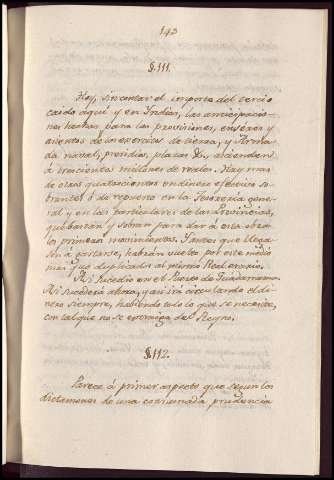 143
§.111.
Hoy, sin contar el importe del tercio
caido aquí y en Indias, las anticipacio-
nes hechas para las provisiones, enseres y
utiles de los exercitos de tierra, y Arma-
da naval, presidios, plazas &c., ascienden
á trescientos millones de reales. Hay mas
de otros quatrocientos en dinero efectivo so-
brantes ó de repuesto en la Tesorería gene-
ral y en las particulares de las Provincias,
que bastan y sobran para dar á esta obra
los primeros movimientos. Antes que llega-
sen á gastarse, habrán vuelto por este medio
mas que duplicados al mismo Real erario.
Así sucedió en el Puerto de Guadarrama.
Así sucederá ahora, y así irá circulando el di-
nero siempre, habiendo todo lo que se necesita,
con tal que no se extraiga del Reyno.
§.112.
Parece á primer aspecto que segun los
dictamenes de una consumada prudencia